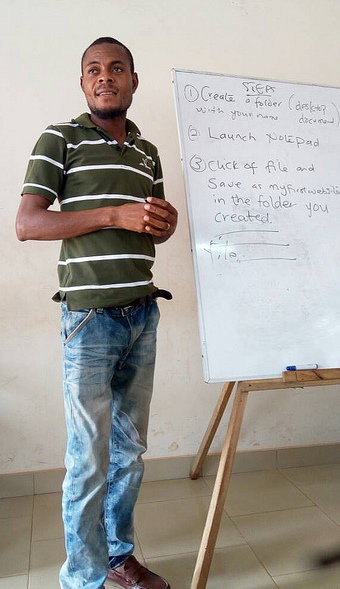 STEPS
① Create a folder (desktop
with your name document
② Launch Notepad
③ Click of file and
Save as myfirstwebsite
in the folder you
created.
file